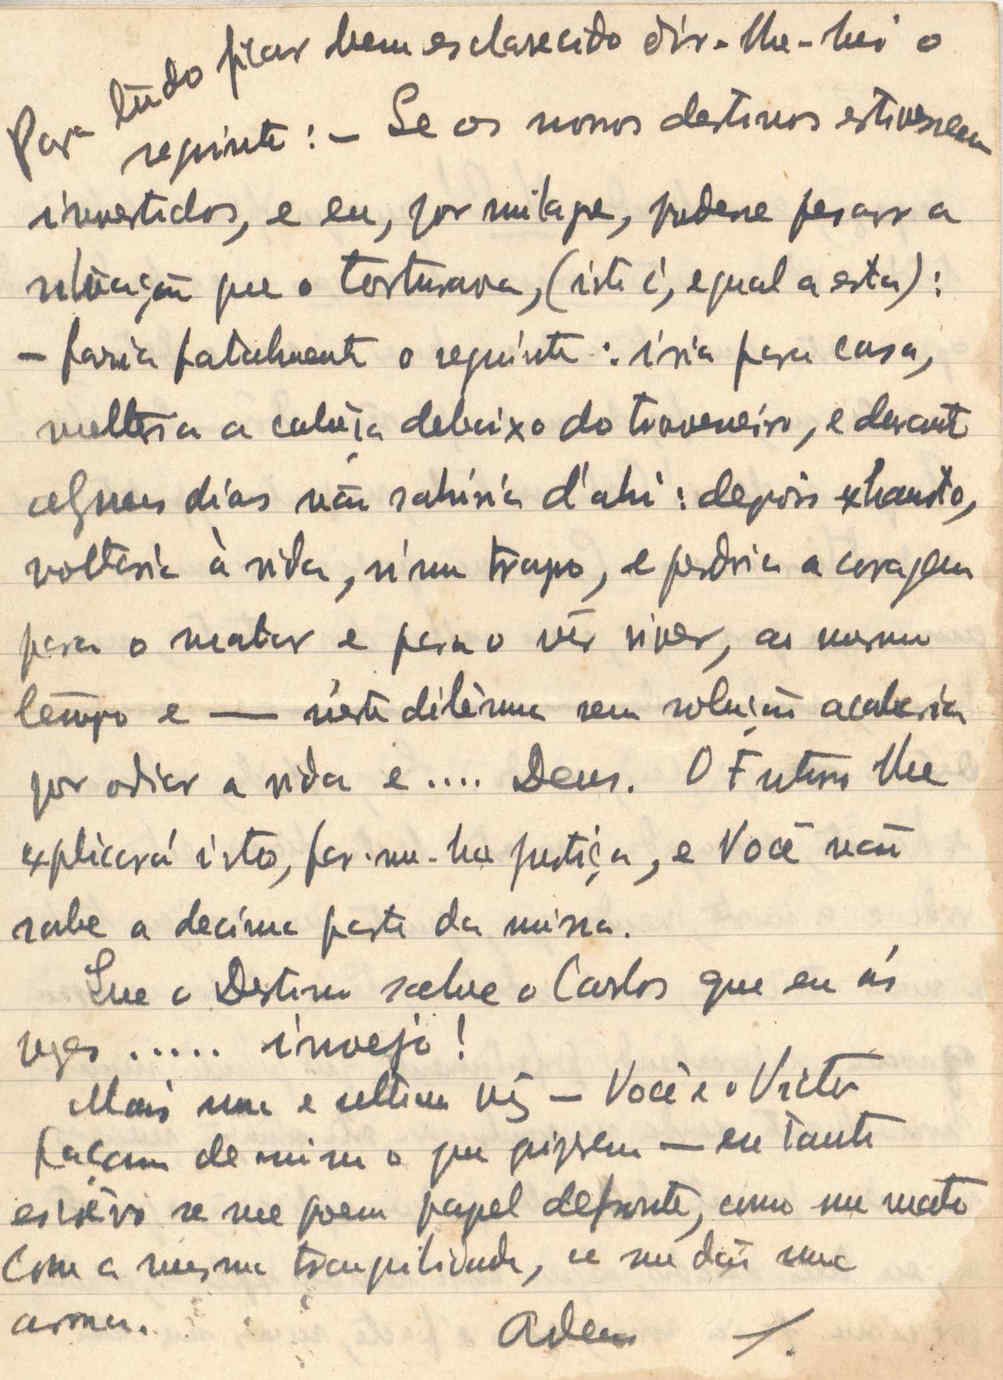 Para tudo ficar bem esclarecido dir-lhe-hei o
seguinte: – Se os nossos destinos estivessem
invertidos, e eu, por milagre, pudesse pesar a
situação que o torturava, (isto é, egual a esta):
– faria fatalmente o seguinte: iria para casa,
metteria a cabeça debaixo do travesseiro, e durante
alguns dias não sahiria d'ahi: depois exhausto,
voltaria á vida, n'um trapo, e perdria a coragem
para o matar e para o vêr viver, ao mesmo
tempo e — n'este dilêma sem solução acabaria
por odiar a vida e .... Deus. O Futuro lhe
explicará isto, far-me-ha justiça, e Você não
sabe a decima parte da missa.
Que o Destino salve o Carlos que eu ás
vezes ..... invejo!
Mais uma e ultima vêz – Você e o Victor
façam de mim o que quizerem — eu tanto
escrêvo se me poem papel defronte, como me mato
com a mesma tranquilidade, se me dão uma
arma. Adeus